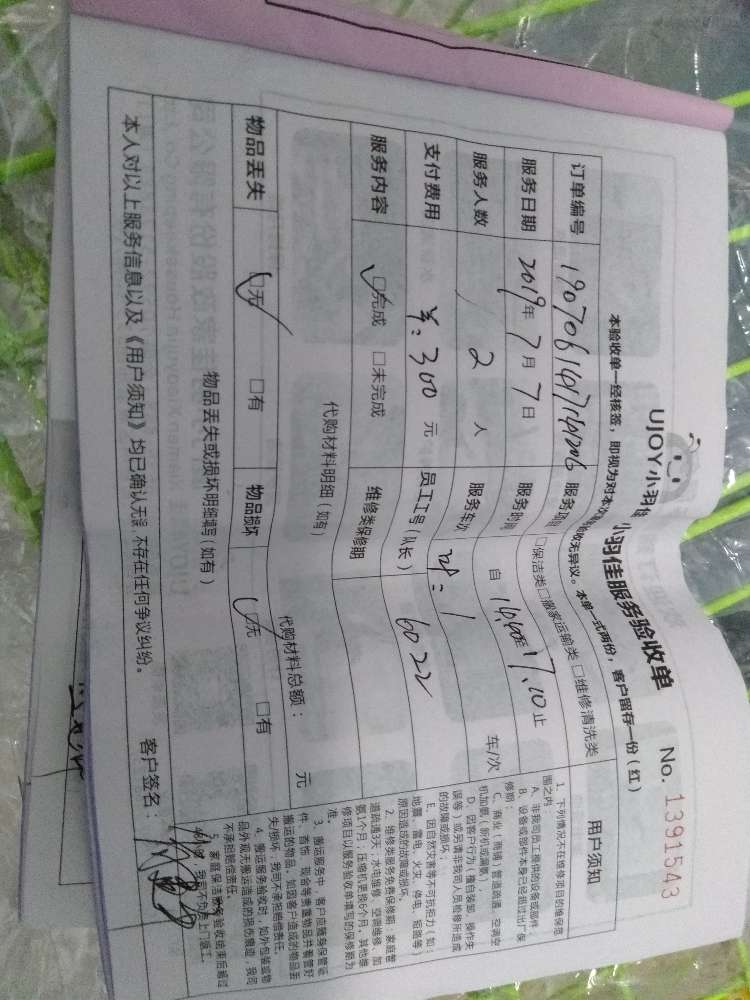 UJOY小羽佳
小羽佳服务验收单
No. 1391543
本验收单一经核签，即视为对本次 无异议。本单一式两份，客户留存一份（红）
订单编号
服务
□保洁类□搬家运输类□维修清洗类
服务日期 2019年7月7日
服务时间 自 至17.10止
服务人数 2人
服务车次 车/次
支付费用 ¥:300元
员工工号（队长） 6022
服务内容 ☑完成 □未完成
维修类保修期
代购材料明细（如有）
代购材料总额： 元
物品丢失 ☑无 □有
物品损坏 ☑无 □有
物品丢失或损坏明细填写（如有）
本人对以上服务信息以及《用户须知》均已确认无误，不存在任何争议纠纷。
客户签名：
用户须知
1、下列情况不在维修项目的维保范
围之内
A、非我司员工提供的设备或部件
B、设备或部件本身已经超过出厂保
修期；
D、因客户行为，擅自装卸、操作失
误等）或另请非我司人员检修所造成
的故障或损坏；
E、因自然灾害等不可抗拒力（如：
地震、雷电、火灾、停电、
原因造成的故障或损坏。
2、维修类服务免费保修期：家庭管
道疏通3天，水电维修、空调维修、加
氨1个月；压缩机更换6个月，其他维
修项目以服务验收单填写的保修期为
准。
3、搬运服务中，客户应随身保管证
件、首饰、现金等贵重物品并看管好
搬运的物品。如因客户造成的物品丢
失/损坏，我司不承担赔偿责任。
4、搬运服务验收时，如外包装或物
品外观无搬运造成的损伤痕迹，我司
不承担赔偿责任。
5、家庭保洁服务验收结束后超过
我司不负责上门返工。